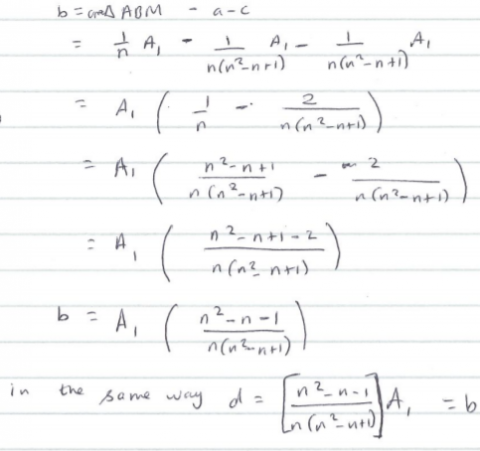 b = area Δ ABM - a - c
= 1/n A₁ - 1/(n(n²-n+1)) A₁ - 1/(n(n²-n+1)) A₁
= A₁ ( 1/n - 2/(n(n²-n+1)) )
= A₁ ( (n²-n+1)/(n(n²-n+1)) - 2/(n(n²-n+1)) )
= A₁ ( (n²-n+1-2)/(n(n²-n+1)) )
b = A₁ ( (n²-n-1)/(n(n²-n+1)) )
in the same way d = [ (n²-n-1)/(n(n²-n+1)) ] A₁ = b